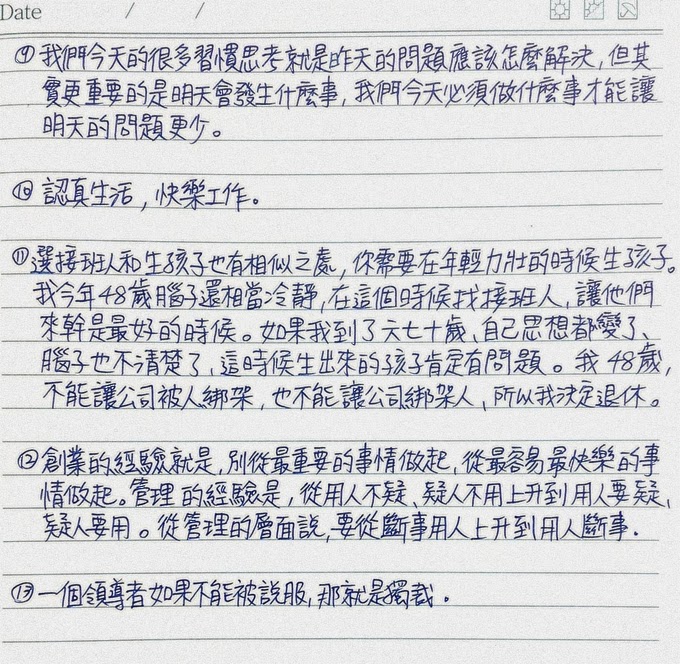 Date / /
⑨我們今天的很多習慣思考就是昨天的問題應該怎麼解決,但其
實更重要的是明天會發生什麼事,我們今天必須做什麼事才能讓
明天的問題更少。
⑩認真生活,快樂工作。
⑪選接班人和生孩子也有相似之處,你需要在年輕力壯的時候生孩子。
我今年48歲腦子還相當冷靜,在這個時候找接班人,讓他們
來幹是最好的時候。如果我到了六七十歲、自己思想都變了、
腦子也不清楚了,這時候生出來的孩子肯定有問題。我48歲,
不能讓公司被人綁架,也不能讓公司綁架人,所以我決定退休。
⑫創業的經驗就是,別從最重要的事情做起,從最容易最快樂的事
情做起。管理的經驗是,從用人不疑、疑人不用上升到用人要疑、
疑人要用。從管理的層面說,要從斷事用人上升到用人斷事.
⑬一個領導者如果不能被說服,那就是獨裁.